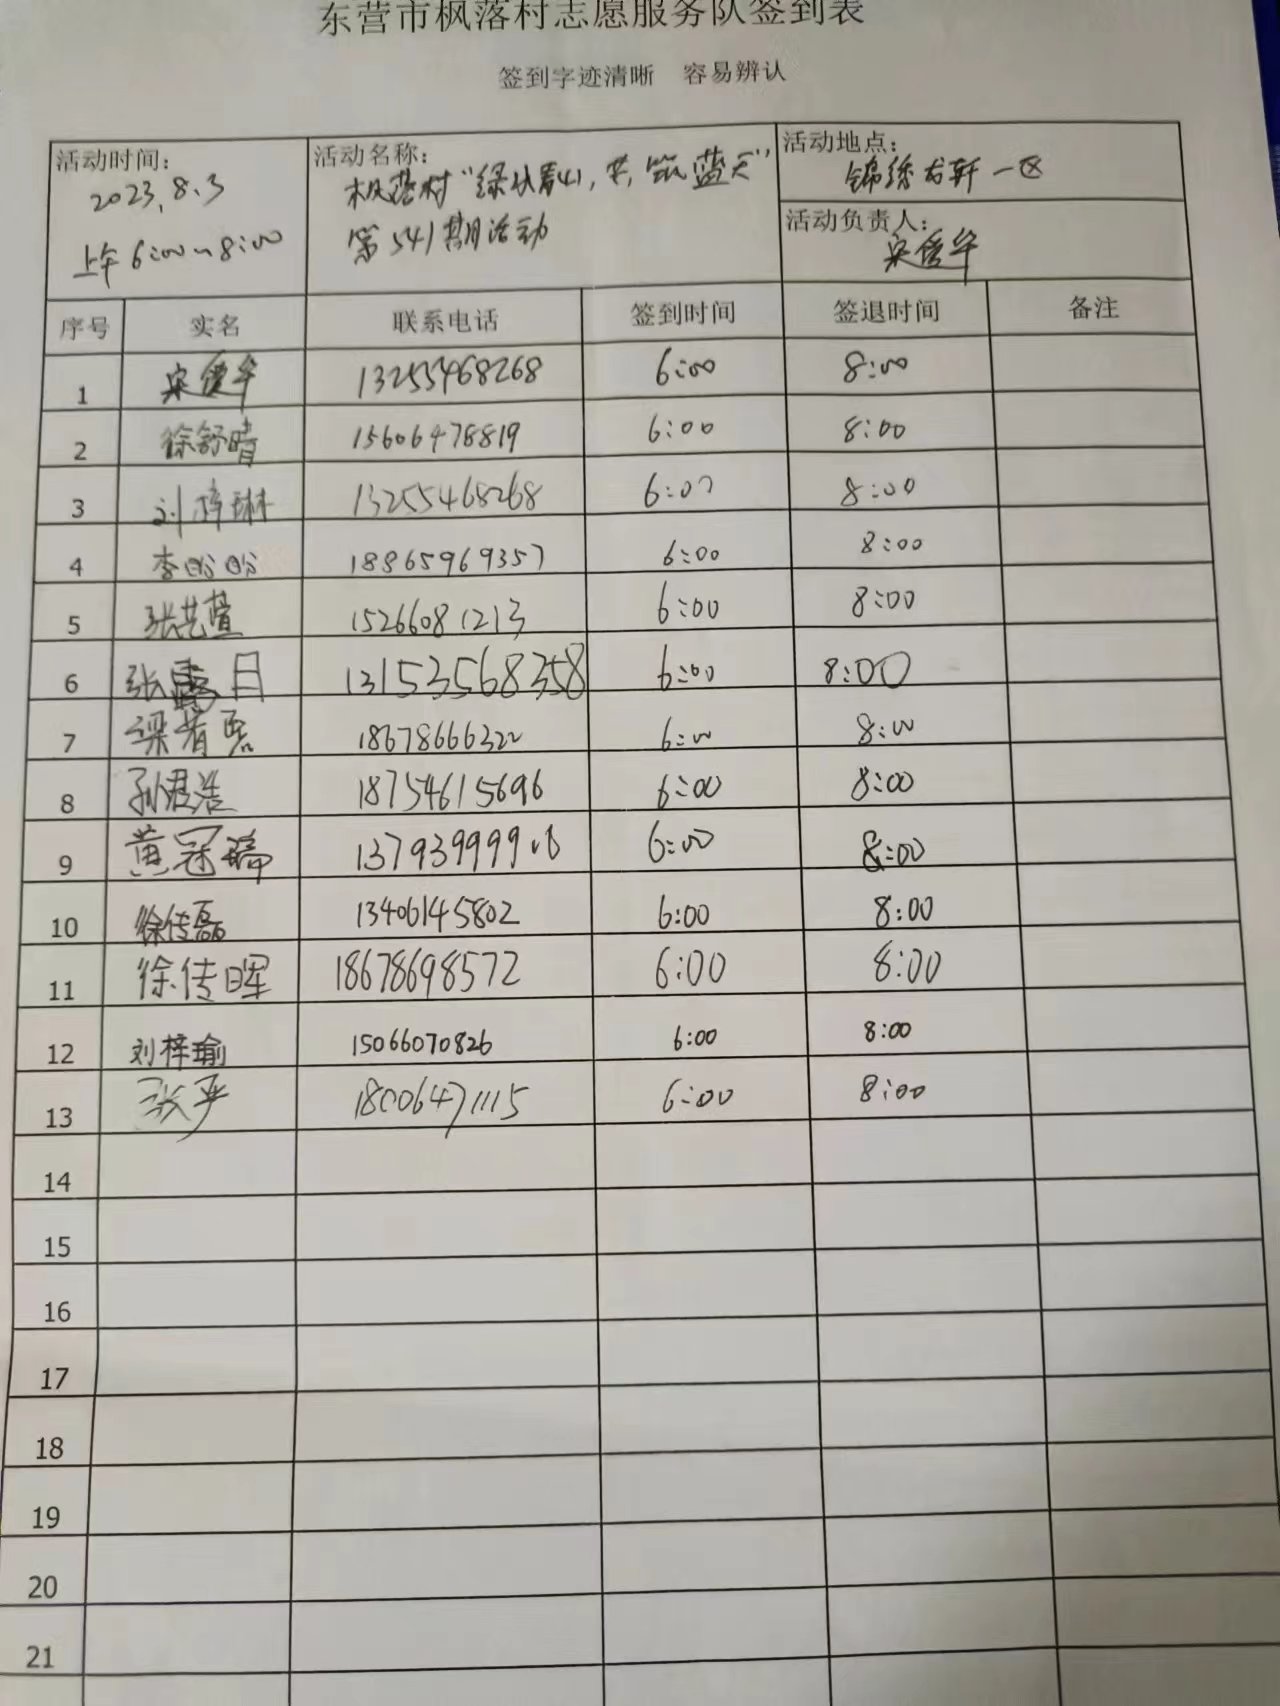 东营市枫落村志愿服务队签到表
签到字迹清晰 容易辨认
活动时间:
2023.8.3
上午 6:00~8:00
活动名称:
枫落村"绿水青山,共筑蓝天"
第541期活动
活动地点:
锦绣龙轩一区
活动负责人:
序号 实名 联系电话 签到时间 签退时间 备注
1 13255468268 6:00 8:00
2 徐舒晴 15606478819 6:00 8:00
3 刘梓琳 13255468268 6:00 8:00
4 李盼盼 18865969357 6:00 8:00
5 张艺萱 15266081213 6:00 8:00
6 张 13153568358 6:00 8:00
7 梁 18678666322 6:00 8:00
8 孙君浩 18754615696 6:00 8:00
9 黄冠 6:00 8:00
10 徐传磊 13406145802 6:00 8:00
11 徐传晖 18678698572 6:00 8:00
12 刘梓瑜 15066070826 6:00 8:00
13 张平 18006471115 6:00 8:00
14
15
16
17
18
19
20
21